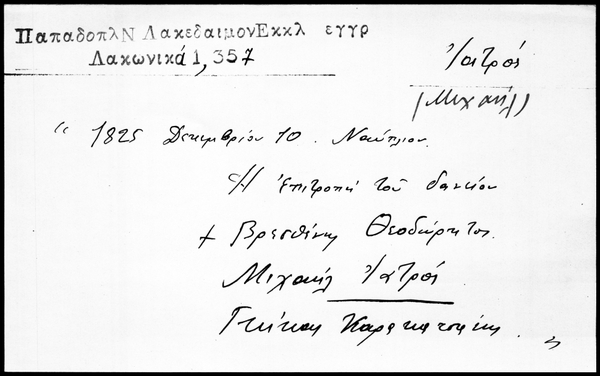 ΠαπαδοπλΝ ΛακεδαιμονΕκκλ εγγρ
Λακωνικά 1, 357
Ἰατρός
(Μιχαήλ)
“ 1825 Δεκεμβρίου 10. Ναύπλιον.
Ἡ ἐπιτροπή τοῦ δανείου
+ Βρεσθένης Θεοδώρητος
Μιχαήλ Ἰατρός
Γκίκας Καρακατσάνης. „